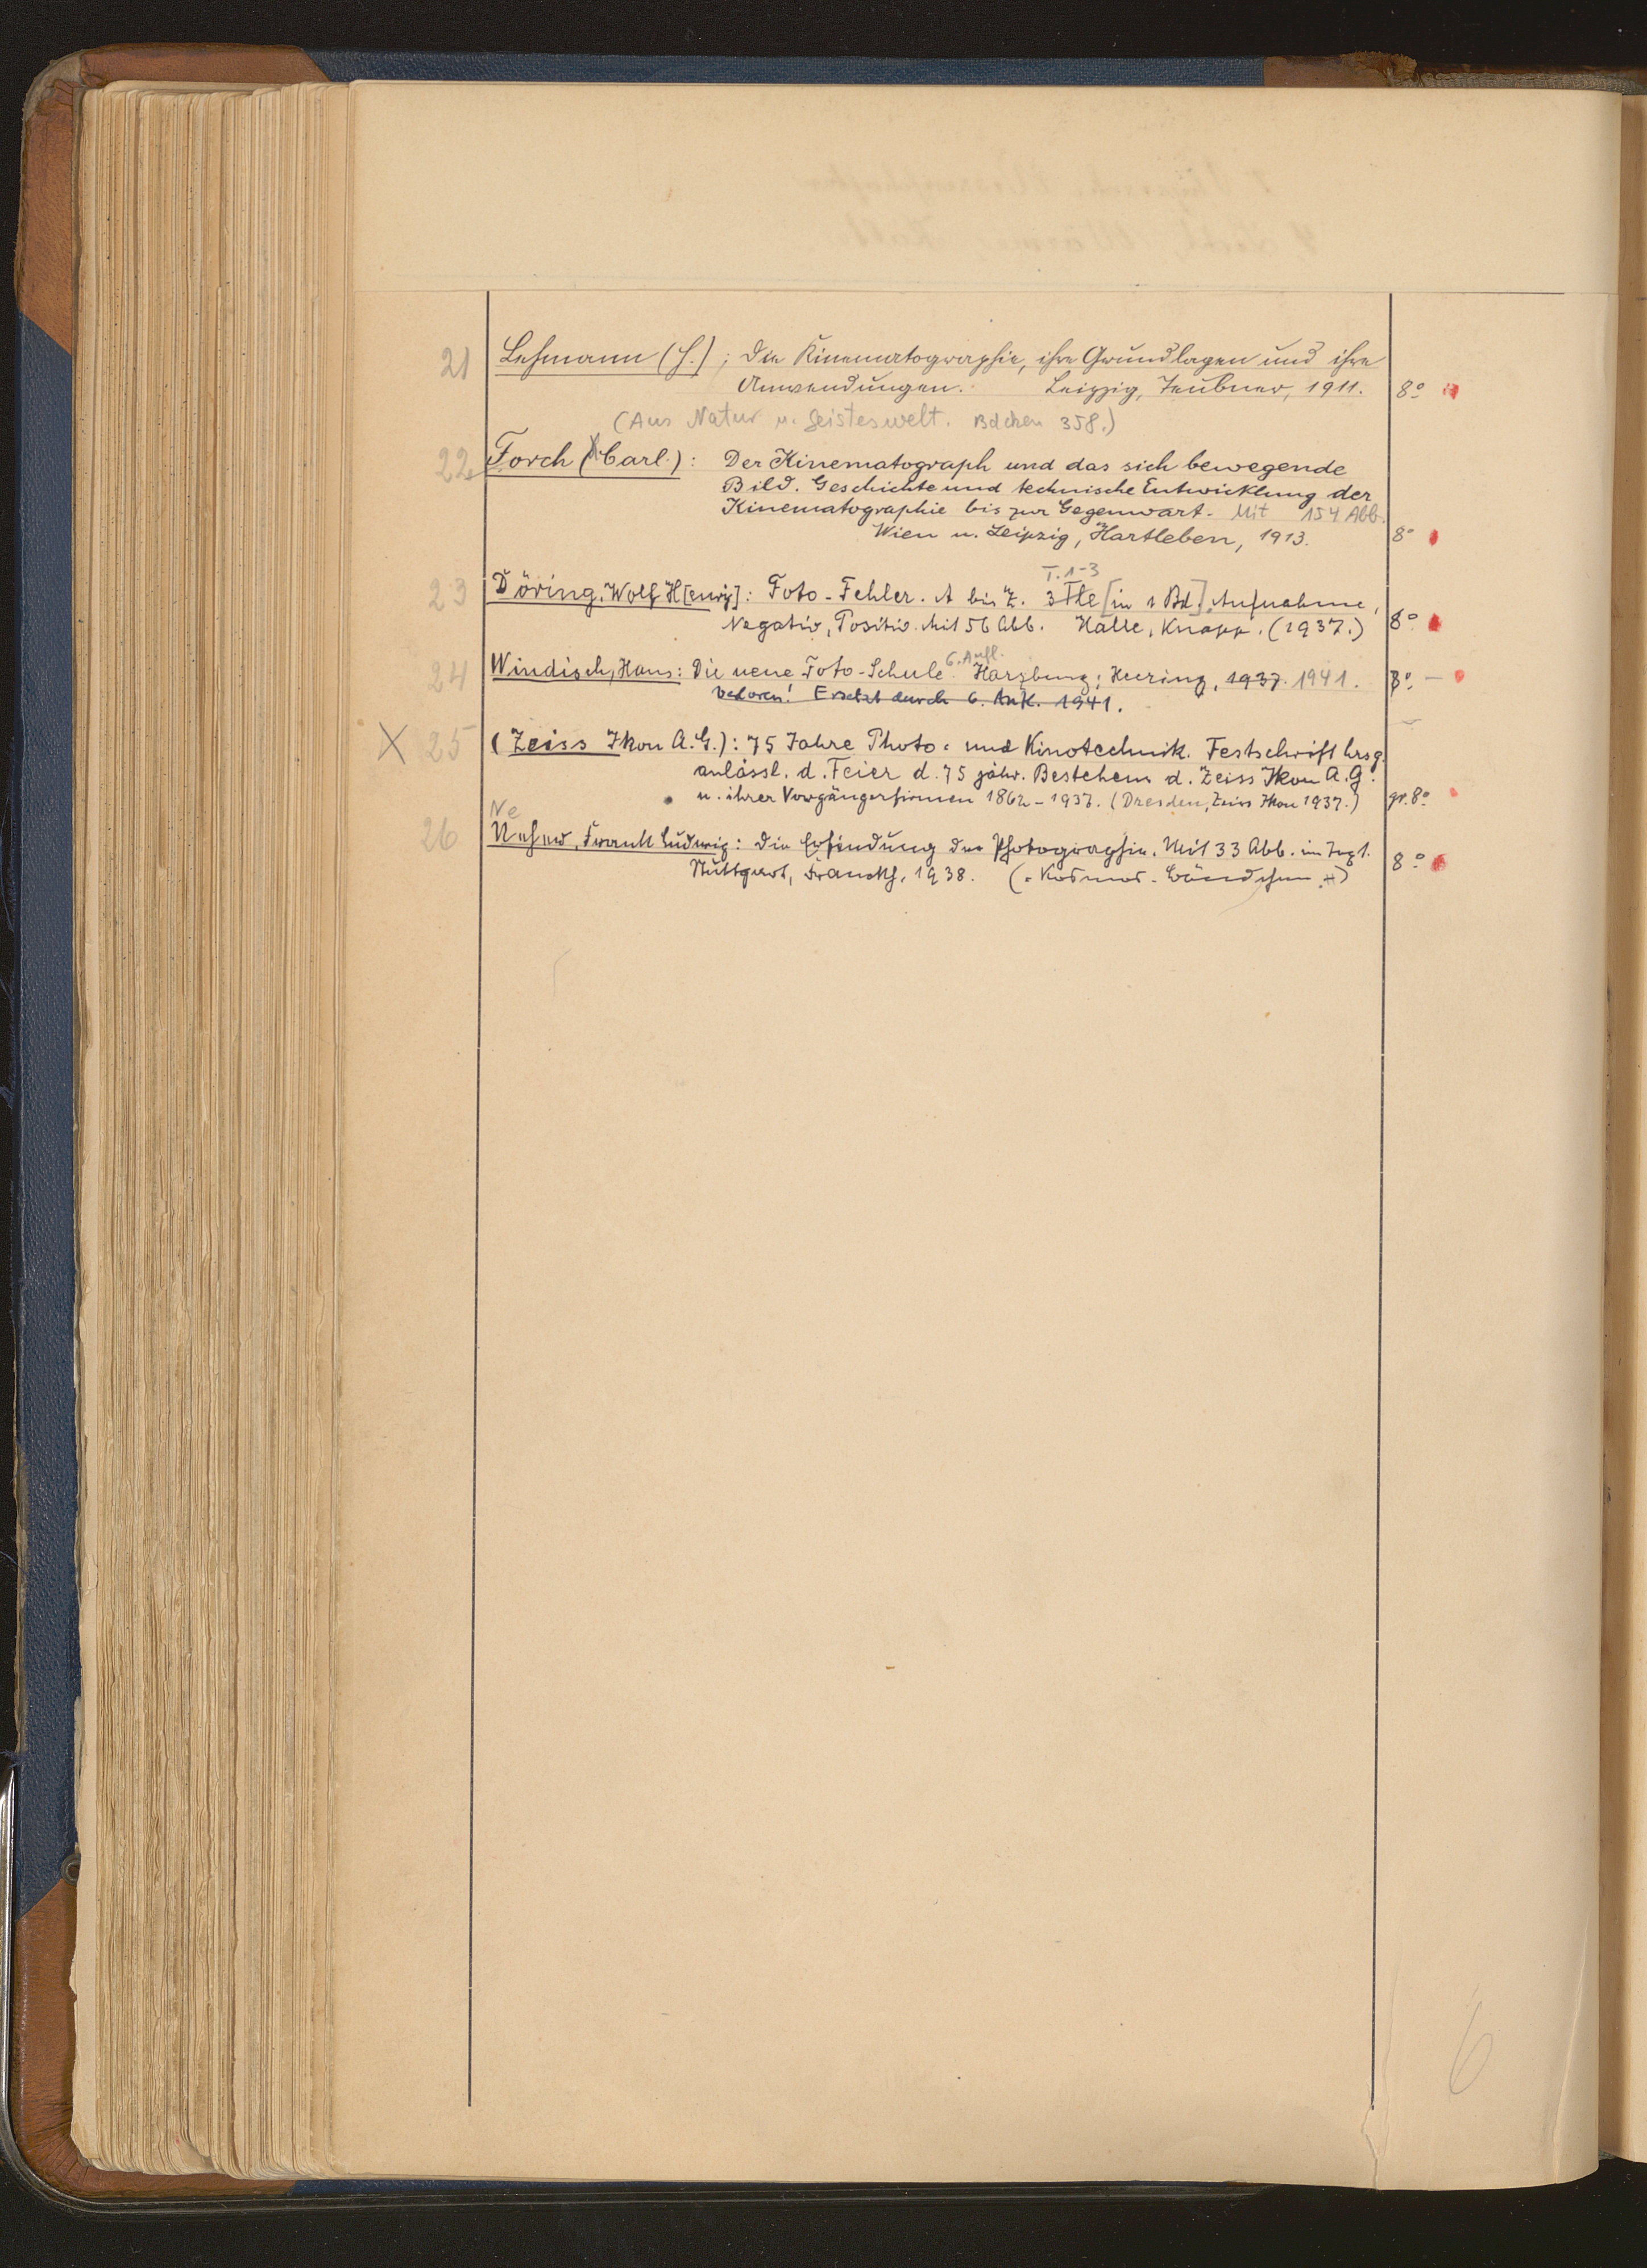 21 Lehmann (H.); Die Kinematographie, ihre Grundlagen und ihre
Anwendungen. Leipzig, Teubner, 1911. 8°
(Aus Natur u. Geisteswelt. Bdchen 358.)
22 Forch (Carl.): Der Kinematograph und das sich bewegende
Bild. Geschichte und technische Entwicklung der
Kinematographie bis zur Gegenwart. Mit 154 Abb.
Wien u. Leipzig, Hartleben, 1913. 8°
T. 1-3
23 Döring, Wolf H[enry]: Foto-Fehler. A bis Z. 3 Tle [in 1 Bd] Aufnahme,
Negativ, Positiv. Mit 56 Abb. Halle, Knapp. (1937.) 8°
6. Aufl.
24 Windisch, Hans: Die neue Foto-Schule. Harzburg; Heering, 1937. 1941. 8°. –
verloren! Ersetzt durch 6. Aufl. 1941.
X 25 (Zeiss Ikon A.G.): 75 Jahre Photo- und Kinotechnik. Festschrift hrsg.
anlässl. d. Feier d. 75 jähr. Bestehens d. Zeiss Ikon A.G.
u. ihrer Vorgängerfirmen 1862-1937. (Dresden, Zeiss Ikon 1937.) gr. 8°
Ne
26 Neher, Frank Ludwig: Die Erfindung der Photographie. Mit 33 Abb. im Text.
Stuttgart, Franckh, 1938. (= Kosmos-Bändchen.) 8°
6